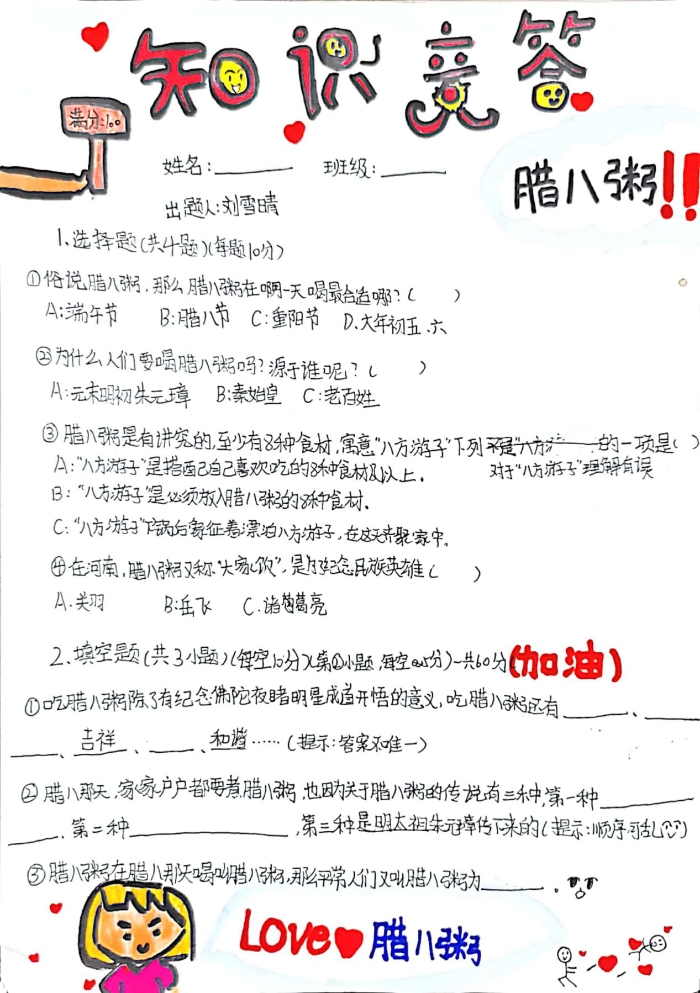 知识竞答
满分:100
姓名: 班级:
腊八粥!!
出题人:刘雪晴
1、选择题(共4题)(每题10分)
①俗说腊八粥,那么腊八粥在哪一天喝最合适哪?( )
A:端午节 B:腊八节 C:重阳节 D、大年初五、六
②为什么人们要喝腊八粥吗?源于谁呢?( )
A:元末明初朱元璋 B:秦始皇 C:老百姓
③腊八粥是有讲究的,至少有8种食材,寓意"八方游子"下列 的一项是( )
对于"八方游子"理解有误
A:"八方游子"是指自己喜欢吃的8种食材及以上.
B:"八方游子"是必须放入腊八粥的8种食材.
C:"八方游子"下锅后象征着漂泊八方游子,在这天齐聚家中.
④在河南,腊八粥又称"大家饭",是纪念民族英雄( )
A.关羽 B:岳飞 C.诸葛亮
2、填空题(共3小题)(每空10分)(第①小题,每空 分)一共60分(加油)
①吃腊八粥除了有纪念佛陀夜睹明星成道开悟的意义,吃腊八粥还有 、
、吉祥、 、和谐……(提示:答案不唯一)
②腊八那天,家家户户都要煮腊八粥,也因为关于腊八粥的传说有三种,第一种
、第二种 ,第三种是明太祖朱元璋传下来的(提示:顺序可乱)
③腊八粥在腊八那天喝叫腊八粥,那么平常人们又叫腊八粥为 。
Love 腊八粥